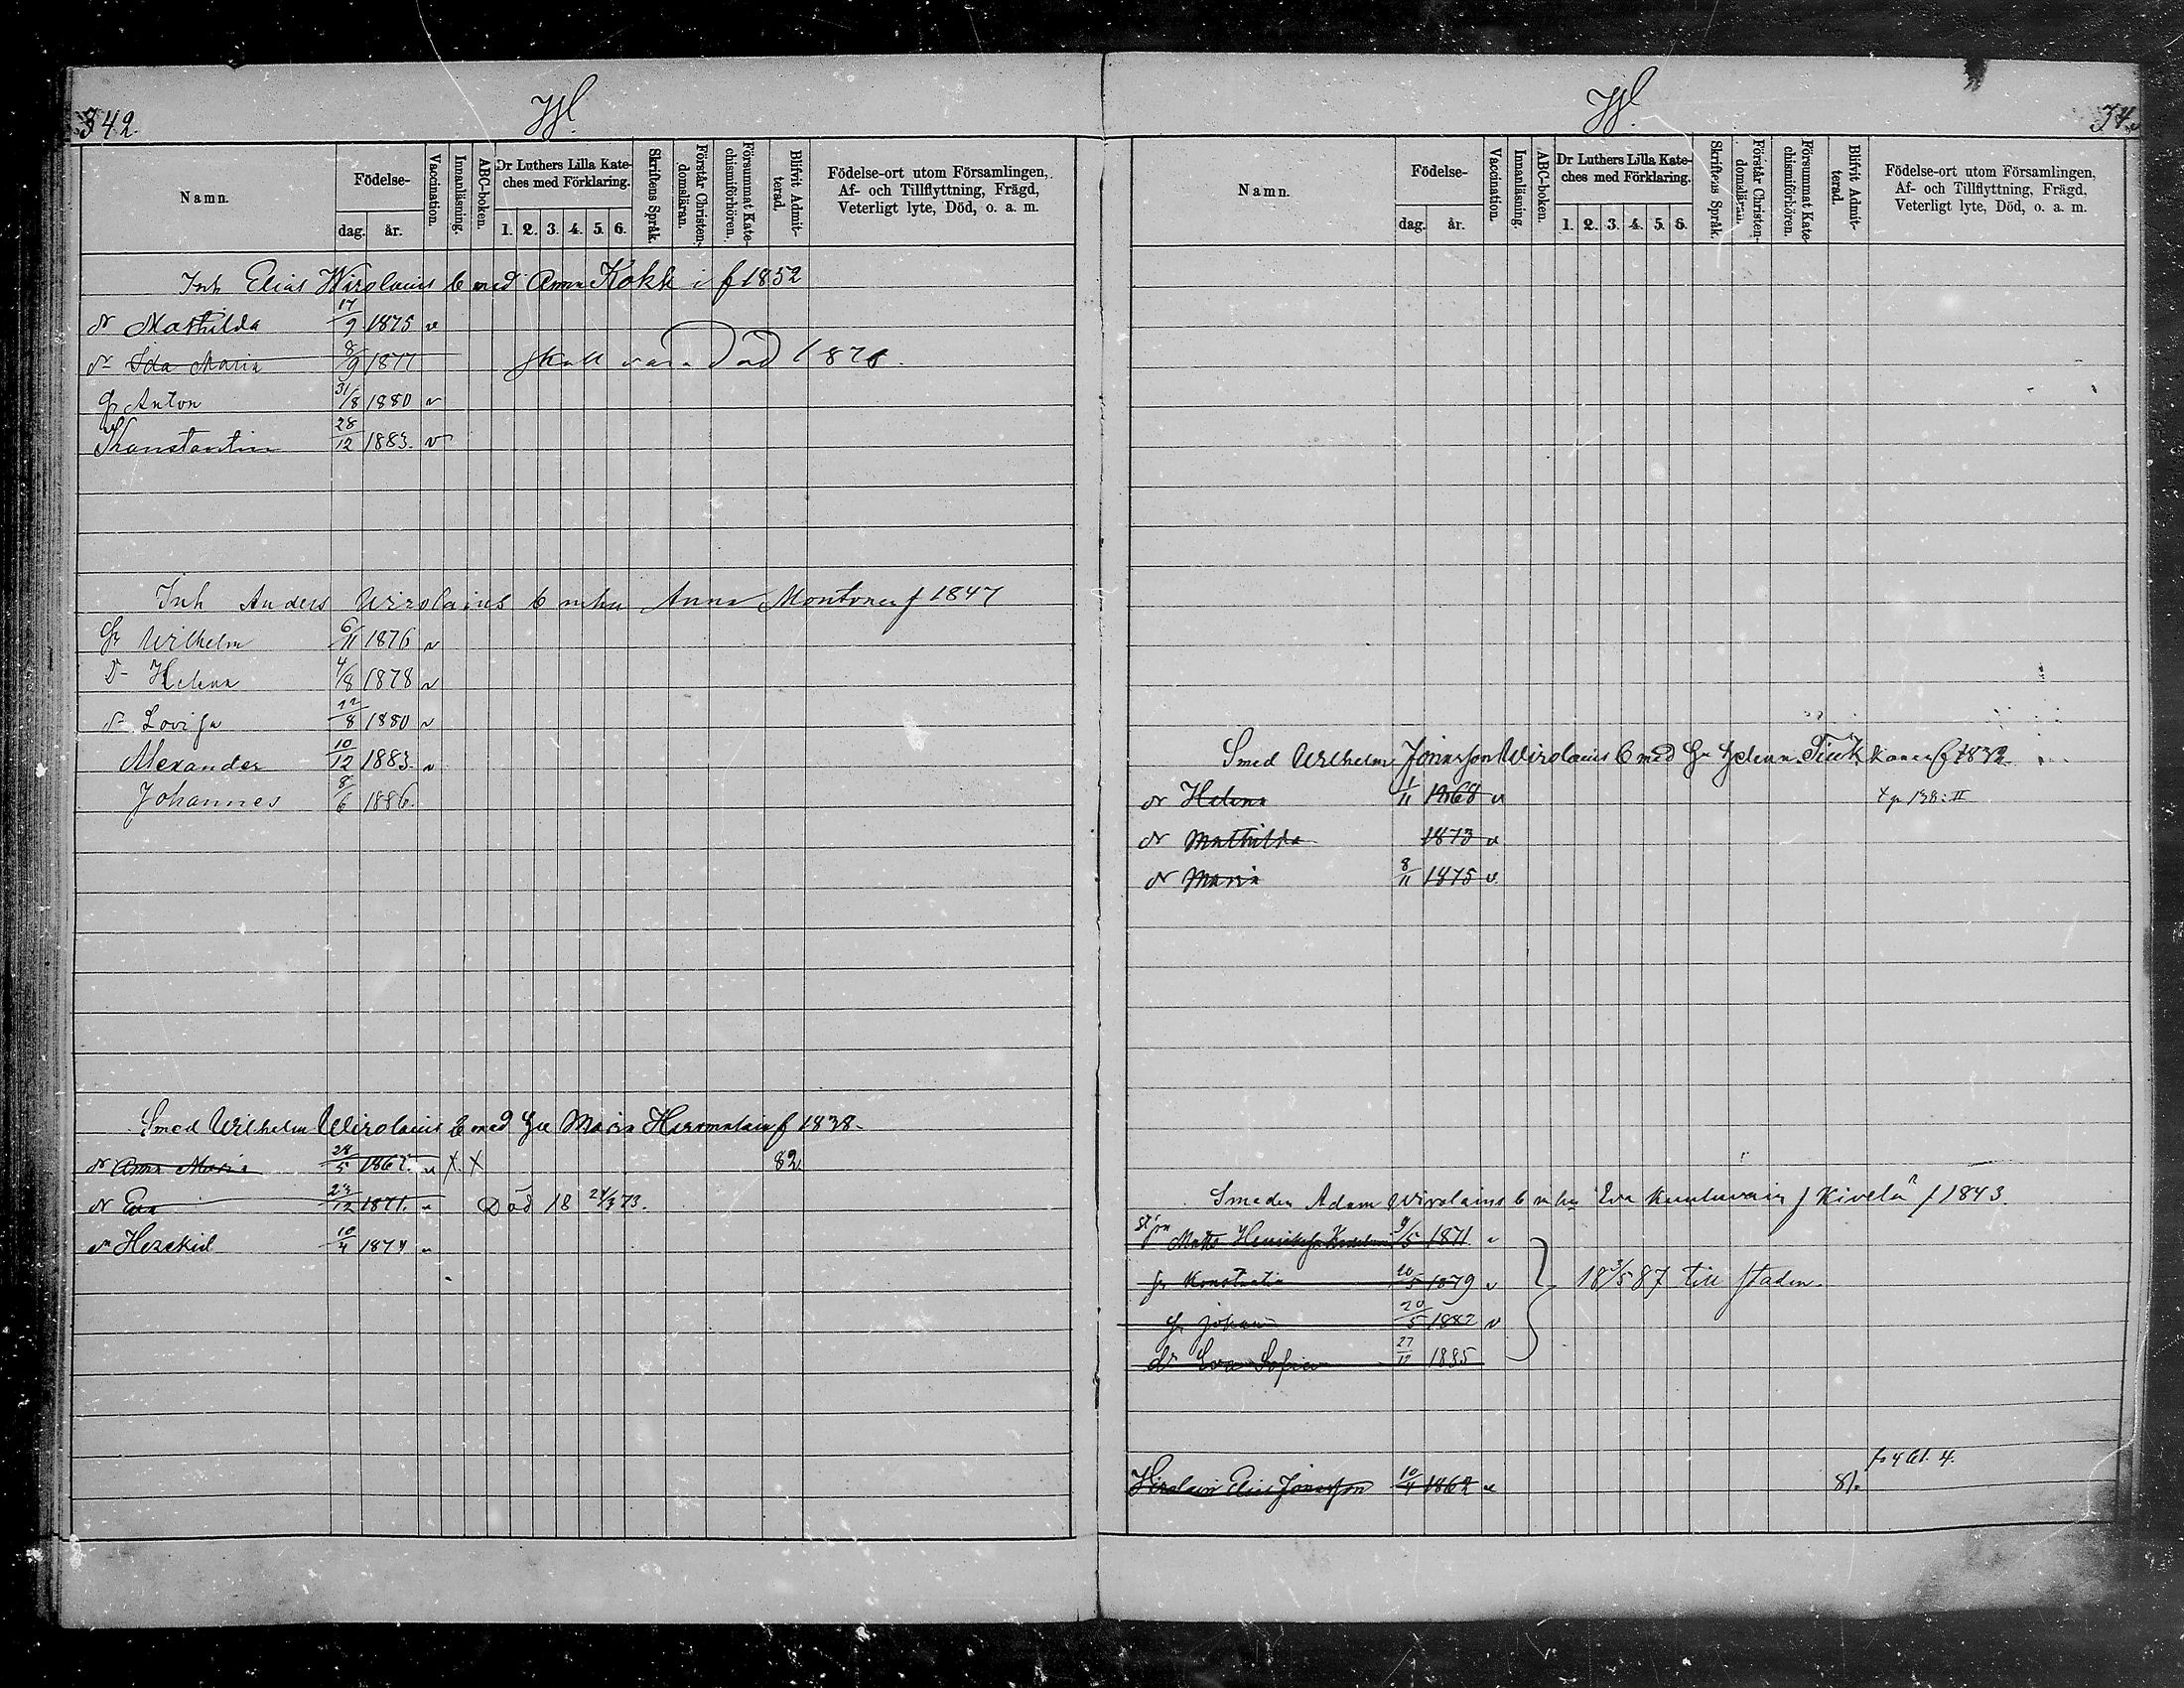 342.
Namn.
Födelse-
dag.
år.
Vaccination.
Innanläsning.
ABC-boken.
Dr Luthers Lilla Kate-
ches med Förklaring.
1. 2. 3. 4. 5. 6.
Skriftens Språk.
Förstår Christen-
domsläran.
Försummat Kate-
chismiförhören.
Blifvit Admit-
terad.
Födelse-ort utom Församlingen,
Af- och Tillflyttning, Frägd,
Veterligt lyte, Död, o. a. m.
Inh Elias Wirolainis b med Anna Kokk i f 1852
dr Mathilda 17/9 1875 v
dr Ida Maria 8/9 1877 skall vara död 1878.
gr Anton 31/8 1880 v
Konstantin 28/12 1883. v
Inh Anders Wirolainis b m hu Anna Montonen f 1847
gr Wilhelm 6/11 1876 v
Dr Helena 4/8 1878 v
dr Lovisa 22/8 1880 v
Alexander 10/12 1883. v
Johannes 8/6 1886.
Smed Wilhelm Wirolainis b med hu Maria f 1838.
dr Anna Maria 28/5 v X X 82.
dr Eva 23/12 1871. v Död 18 24/3 73.
Hesekiel 10/4 1874 v
Namn.
Födelse-
dag.
år.
Vaccination.
Innanläsning.
ABC-boken.
Dr Luthers Lilla Kate-
ches med Förklaring.
1. 2. 3. 4. 5. 6.
Skriftens Språk.
Förstår Christen-
domsläran.
Försummat Kate-
chismiförhören.
Blifvit Admit-
terad.
Födelse-ort utom Församlingen,
Af- och Tillflyttning, Frägd,
Veterligt lyte, Död, o. a. m.
Smed Wilhelm Jonasson Wirolainis b med hu Helena f 1832
dr Helena 1/11 1868 v 138: II
dr Mathilda 1873 v
dr Maria 8/11 1875 v.
Smeden Adam Wirolainis b m hu Eva f Kivelä f 1843.
Matts 9/5 1871 v
gr Konstantin 10/5 1879 v 18 3/5 87 till staden.
gr Johan 20/5 1882 v
dr Eva Sofia 27/12 1885
Elias Jonasson 10/4 1862 v 81.